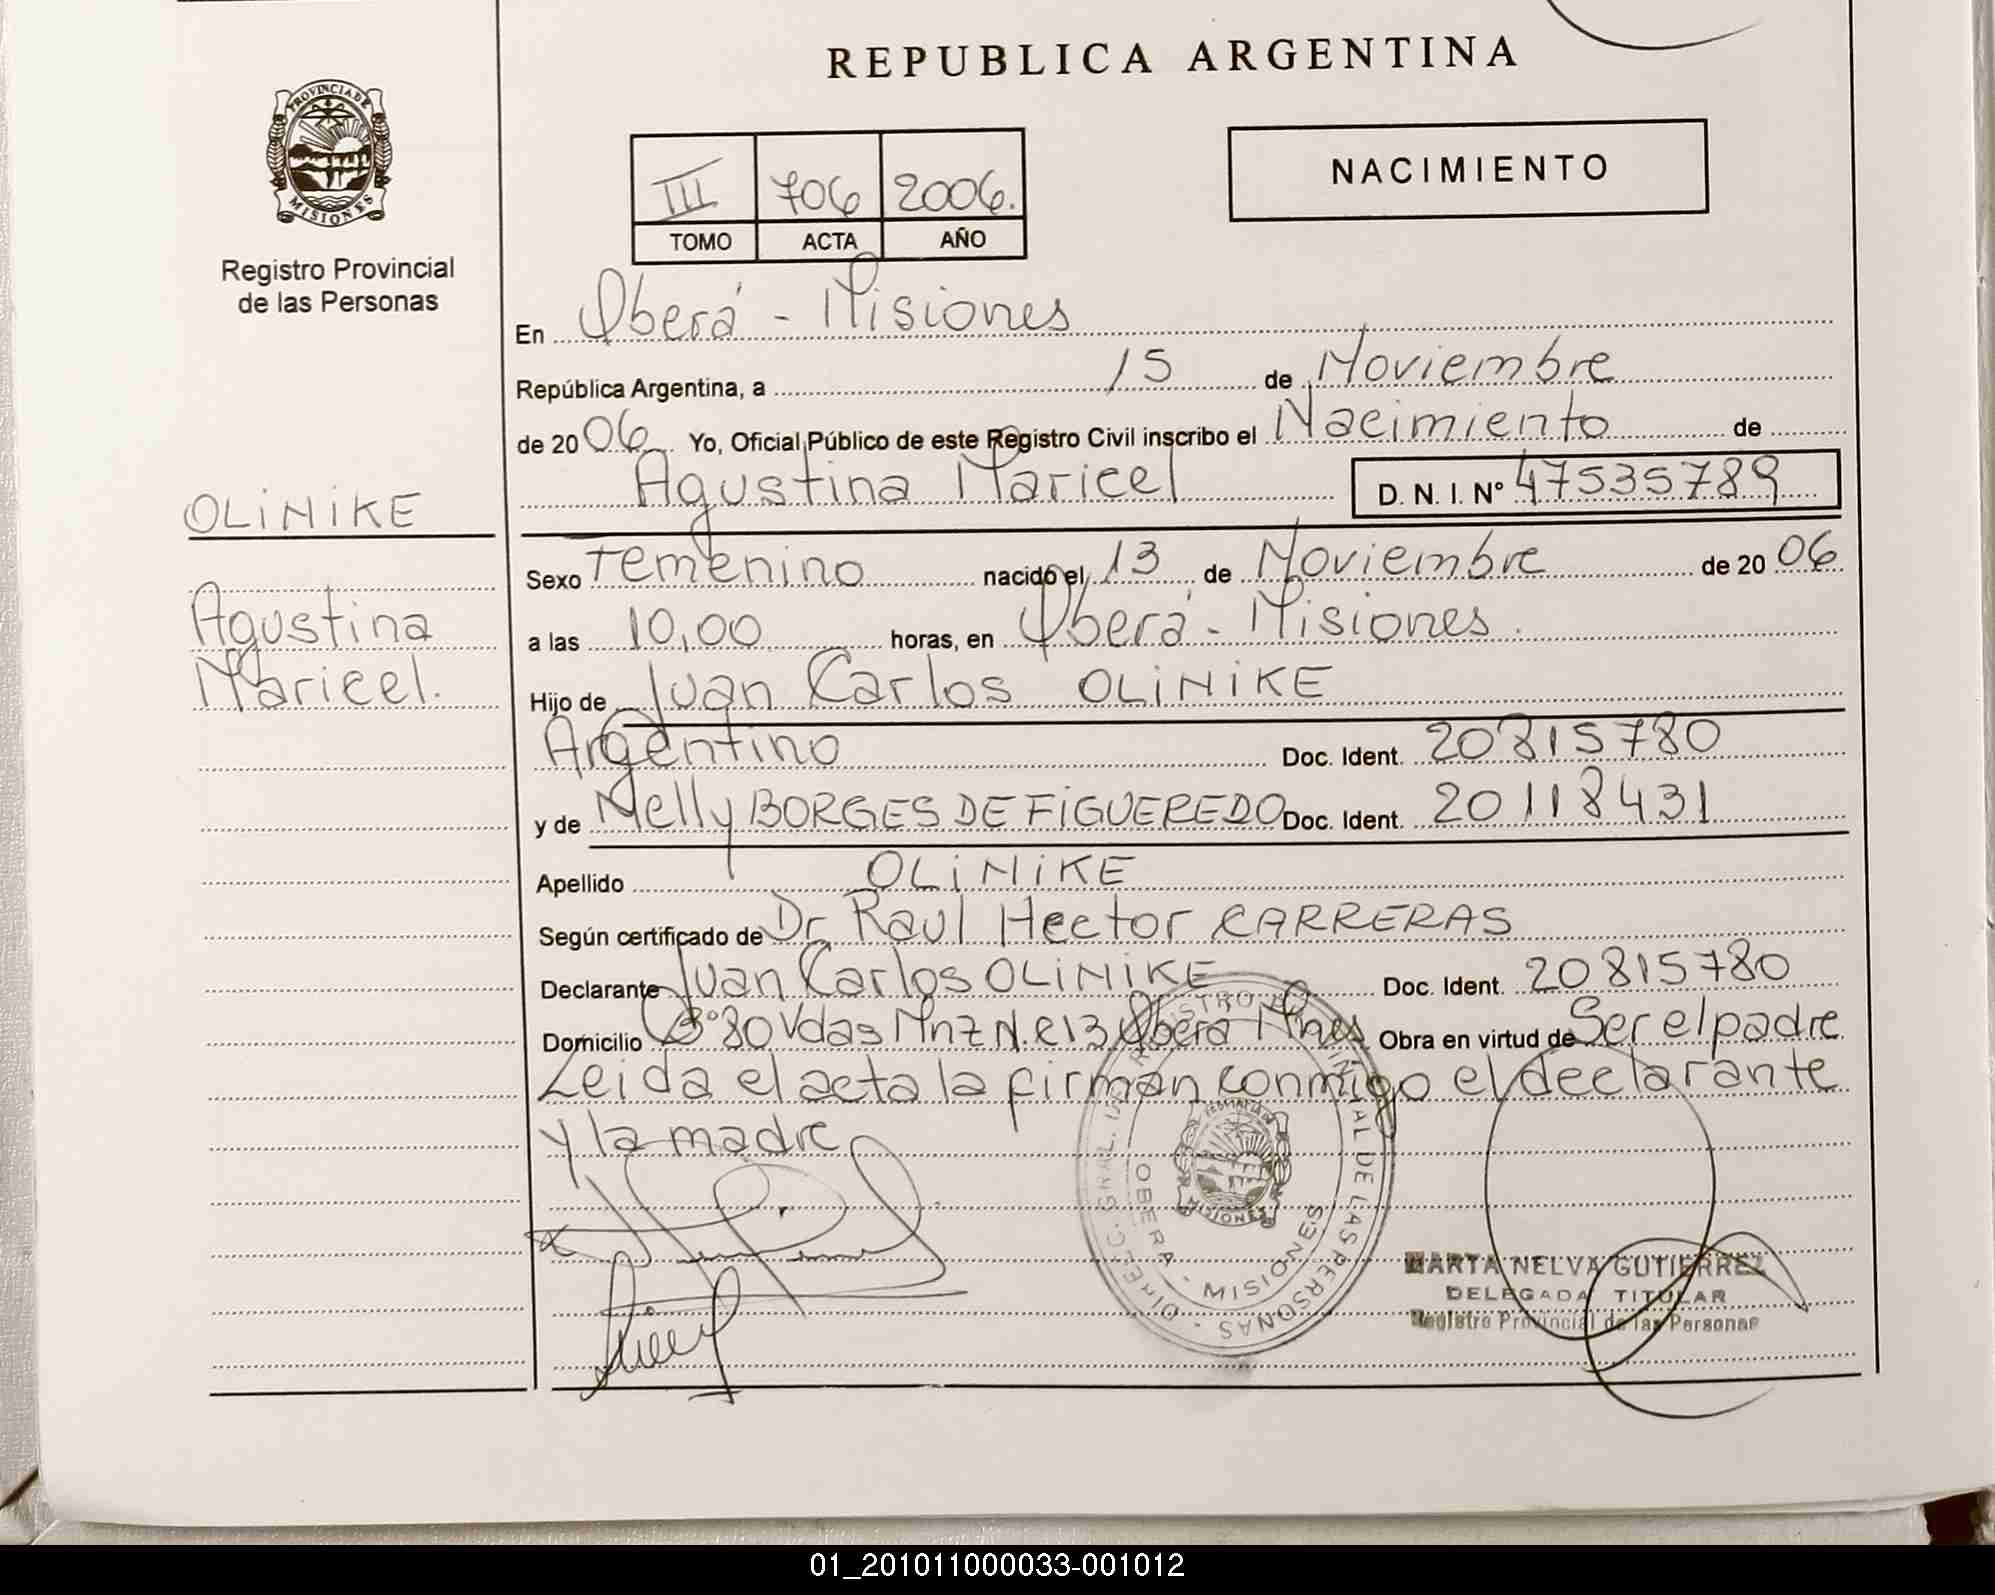 REPUBLICA ARGENTINA
PROVINCIA DE
MISIONES
Registro Provincial
de las Personas
III 706 2006.
TOMO ACTA AÑO
NACIMIENTO
En Oberá - Misiones
República Argentina, a 15 de Noviembre
de 20 06 Yo, Oficial Público de este Registro Civil inscribo el Nacimiento de
Agustina Maricel D. N. I. Nº 47535789
OLiNiKE
Agustina
Maricel.
Sexo Femenino nacido el 13 de Noviembre de 20 06
a las 10,00 horas, en Oberá - Misiones.
Hijo de Juan Carlos OLiNiKE
Argentino Doc. Ident. 20815780
y de Nelly BORGES DE FiGUEREDO Doc. Ident. 20118431
Apellido OLiNiKE
Según certificado de Dr Raul Hector CARRERAS
Declarante Juan Carlos OLiNiKE Doc. Ident. 20815780
Domicilio Bº 80 Vdas Mnz N. e 13 Oberá Mnes Obra en virtud de Ser el padre
Leida el acta la firman conmigo el declarante
y la madre
DIREC. GRAL. DEL REGISTRO PROVINCIAL DE LAS PERSONAS
OBERA - MISIONES
MISIONES
MARTA NELVA GUTIERREZ
DELEGADA TITULAR
Registro Provincial de las Personas
01_201011000033-001012